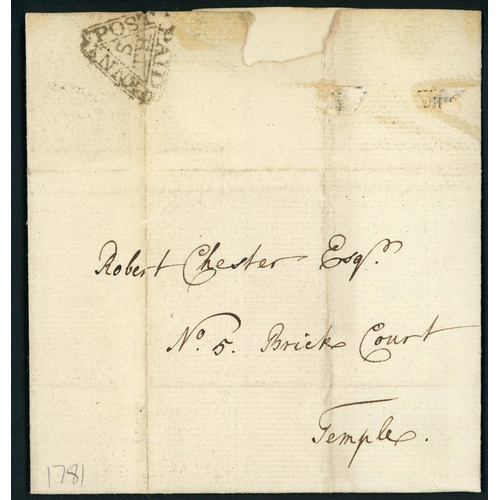 PENNY POST PAID
Robert Chester Esqr.
No. 5. Brick Court
Temple.
1781